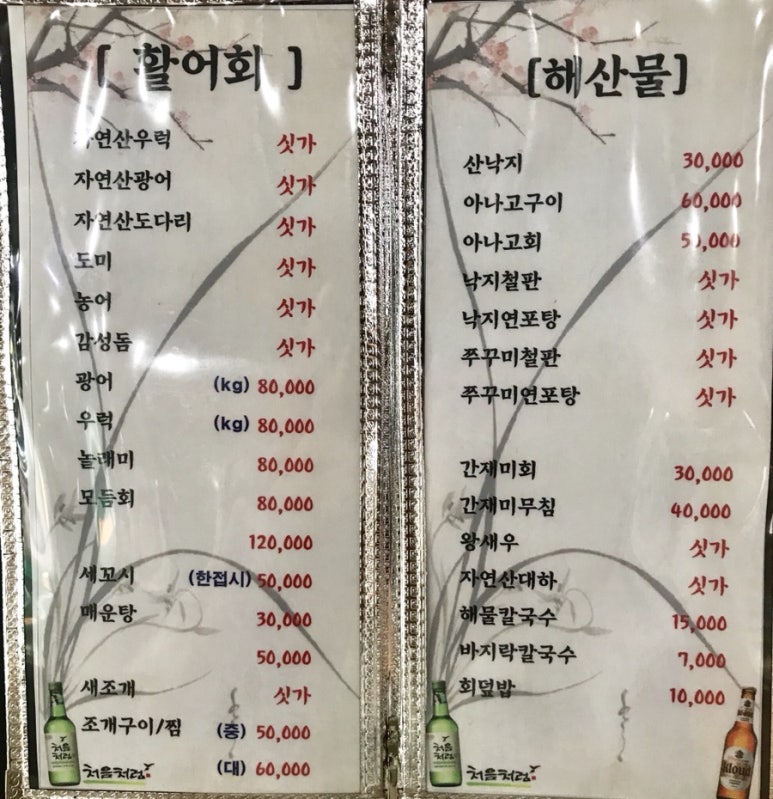 [ 활어회 ]
자연산우럭 싯가
자연산광어 싯가
자연산도다리 싯가
도미 싯가
농어 싯가
감성돔 싯가
광어 (kg) 80,000
우럭 (kg) 80,000
놀래미 80,000
모듬회 80,000
120,000
세꼬시 (한접시) 50,000
매운탕 30,000
50,000
새조개 싯가
조개구이/찜 (중) 50,000
(대) 60,000
처음처럼
처음처럼
[해산물]
산낙지 30,000
아나고구이 60,000
아나고회 50,000
낙지철판 싯가
낙지연포탕 싯가
쭈꾸미철판 싯가
쭈꾸미연포탕 싯가
간재미회 30,000
간재미무침 40,000
왕새우 싯가
자연산대하 싯가
해물칼국수 15,000
바지락칼국수 7,000
회덮밥 10,000
처음처럼
처음처럼
Kloud